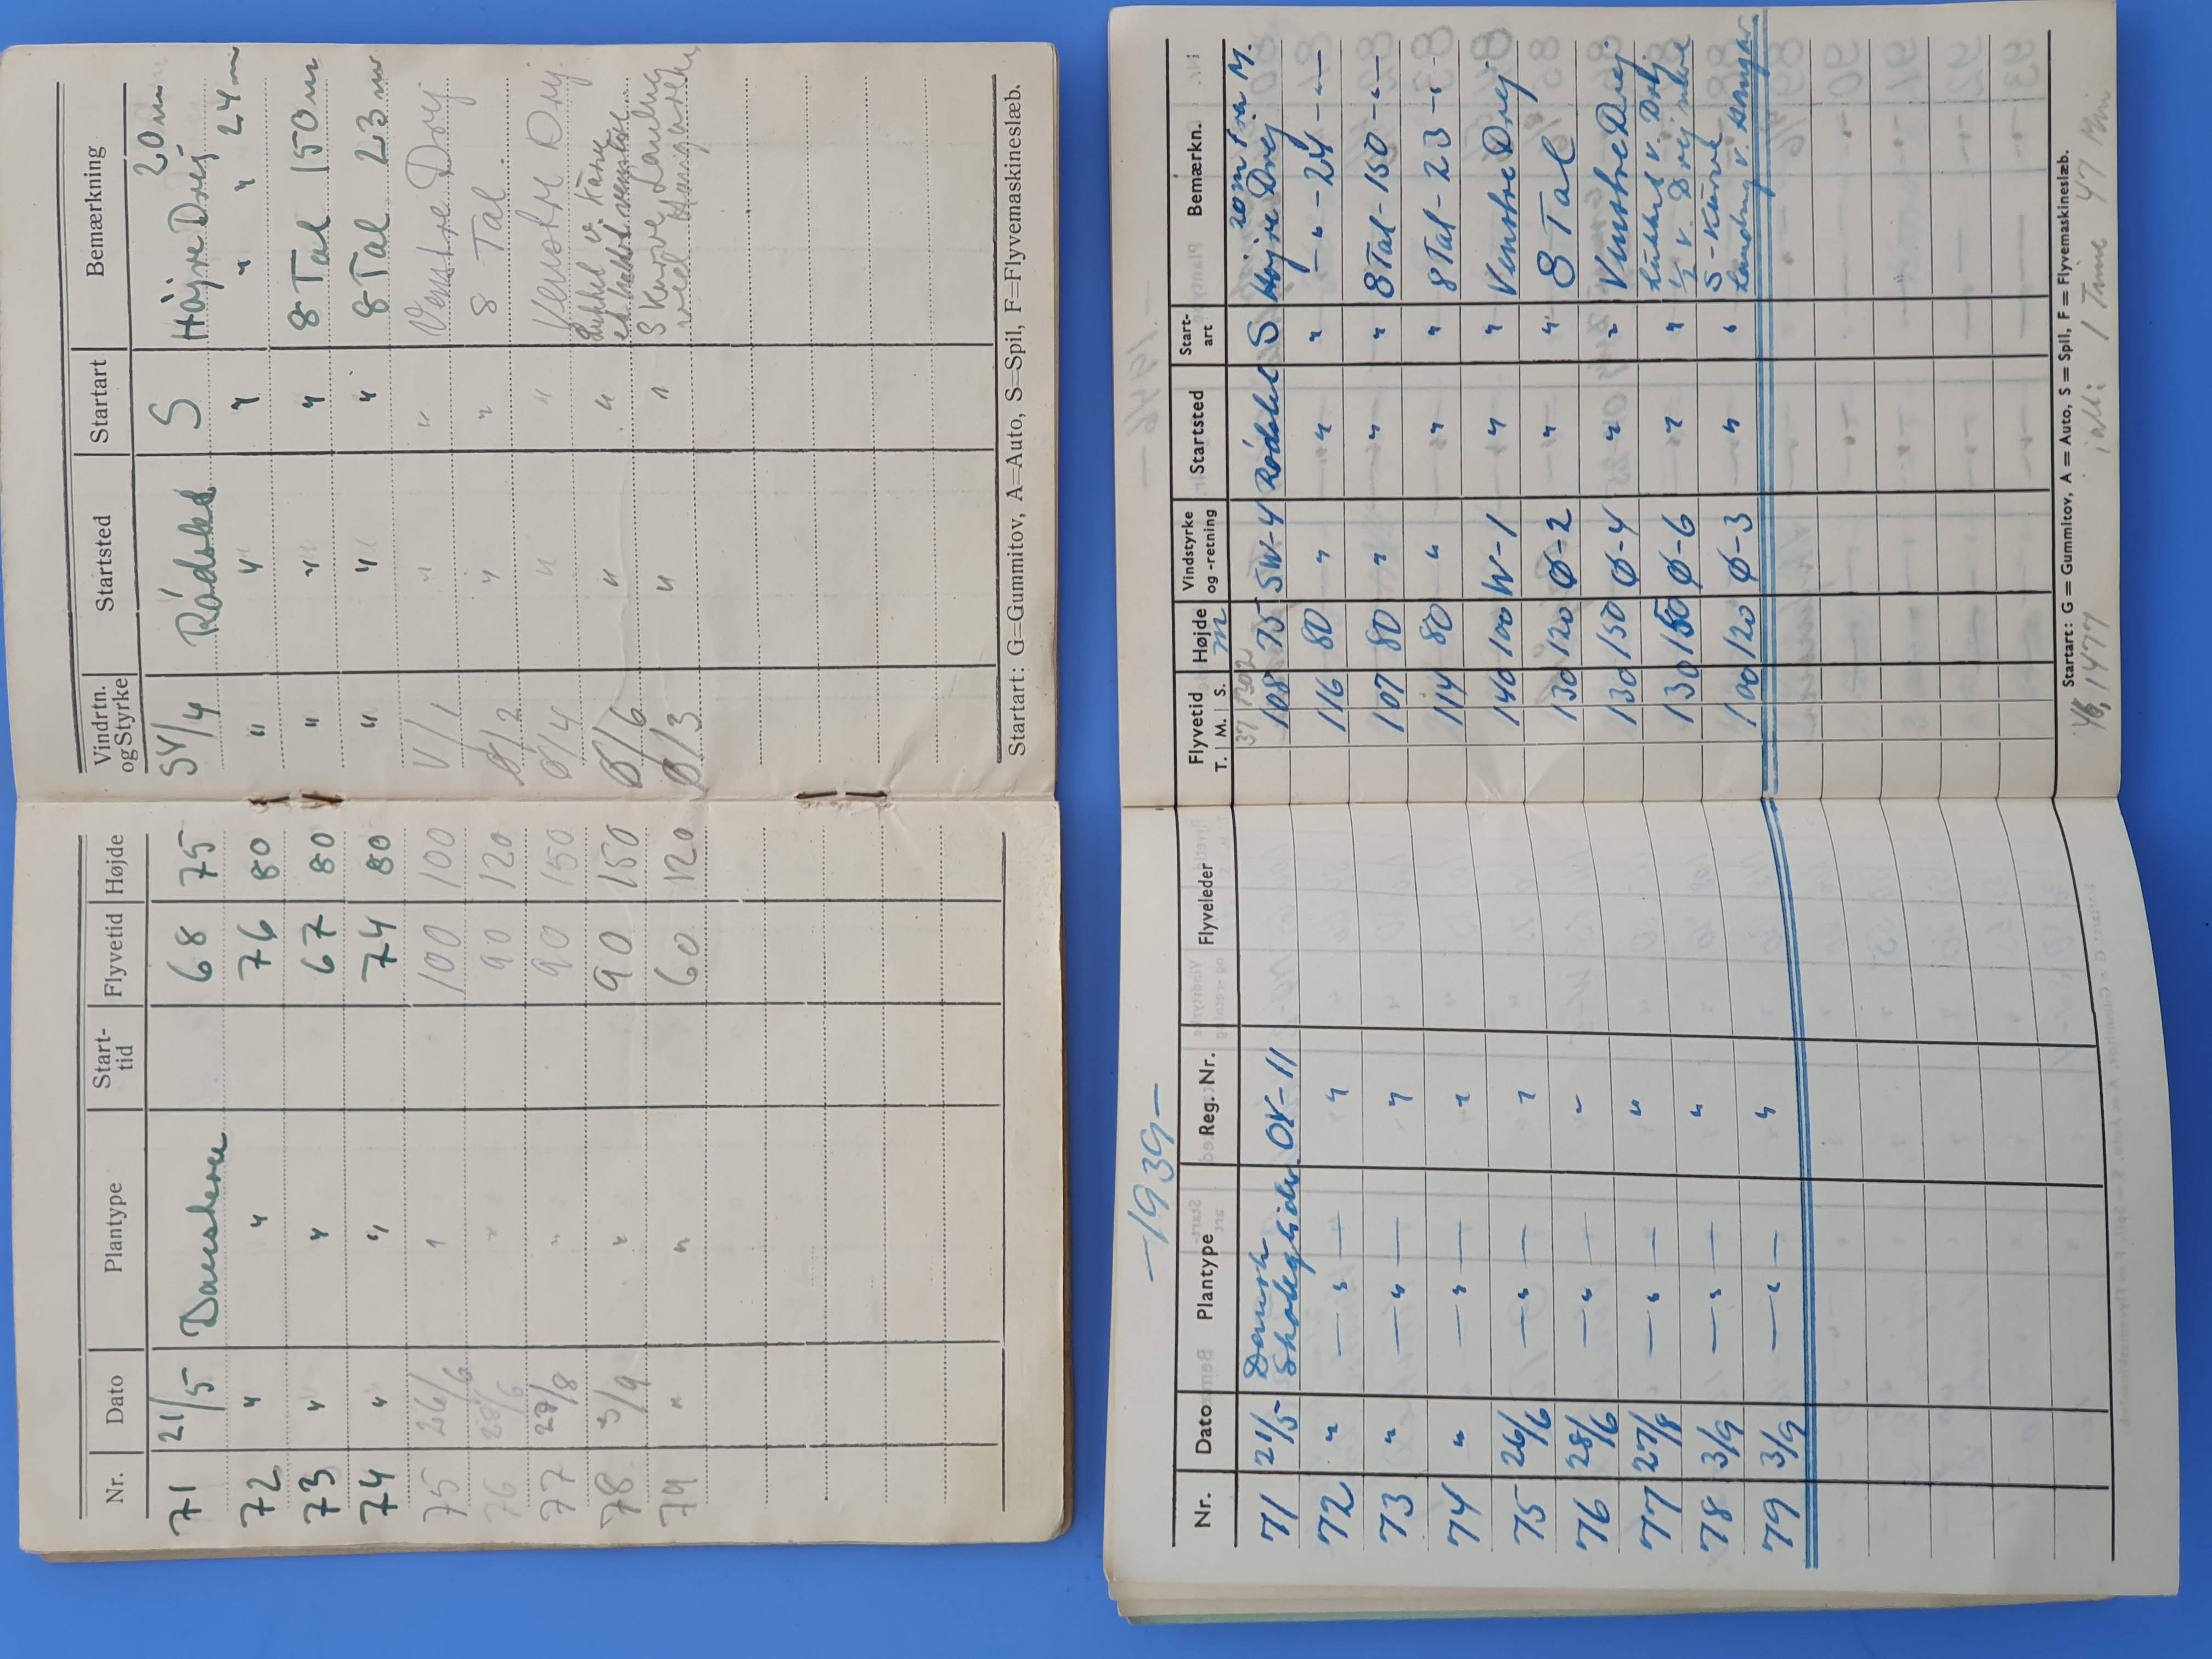 Nr. Dato Plantype Start-tid Flyvetid Højde Vindrtn. og Styrke Startsted Startart Bemærkning
71 21/5 Danskeren 68 75 SV/4 Rådskel S Højre Drej 20 m
72 " " 76 80 " " " " " 24 m
73 " " 67 80 " " " 8-Tal 150 m
74 " " 74 80 " " " 8-Tal 23 m
75 26/6 " 100 100 V/1 " " Venstre Drej
76 28/6 " 90 120 Ø/2 " " 8-Tal
77 27/8 " 90 150 Ø/4 " " Venstre Drej
78 3/9 " 90 150 Ø/6 " " Lukket v. Kurve
79 " " 60 120 Ø/3 " " S Kurve Landing ved Hangaren
Startart: G=Gummitov, A=Auto, S=Spil, F=Flyvemaskineslæb.
—1939—
Nr. Dato Plantype Reg. Nr. Flyveleder Flyvetid T. M. S. Højde m Vindstyrke og -retning Startsted Start-art Bemærkn.
37 1302
71 21/5 Dansk Skoleglider OY-11 108 75 SW-4 Rådskel S Højre Drej 20 m fra M.
72 " — " — " 116 80 " " " — " — 24 — " —
73 " — " — " 107 80 " " " 8 Tal - 150 — " —
74 " — " — " 114 80 " " " 8 Tal - 23 — " —
75 26/6 — " — " 140 100 W-1 " " Venstre Drej
76 28/6 — " — " 130 120 Ø-2 " " 8 Tal
77 27/8 — " — " 130 150 Ø-4 " " Venstre Drej
78 3/9 — " — " 130 150 Ø-6 " " Lukket v. Drej ½ v. Drej
79 3/9 — " — " 100 120 Ø-3 " " S-Kurve Landing v. Hangar
Startart: G = Gummitov, A = Auto, S = Spil, F = Flyvemaskineslæb.
1477 ialt: 1 Time 47 Min